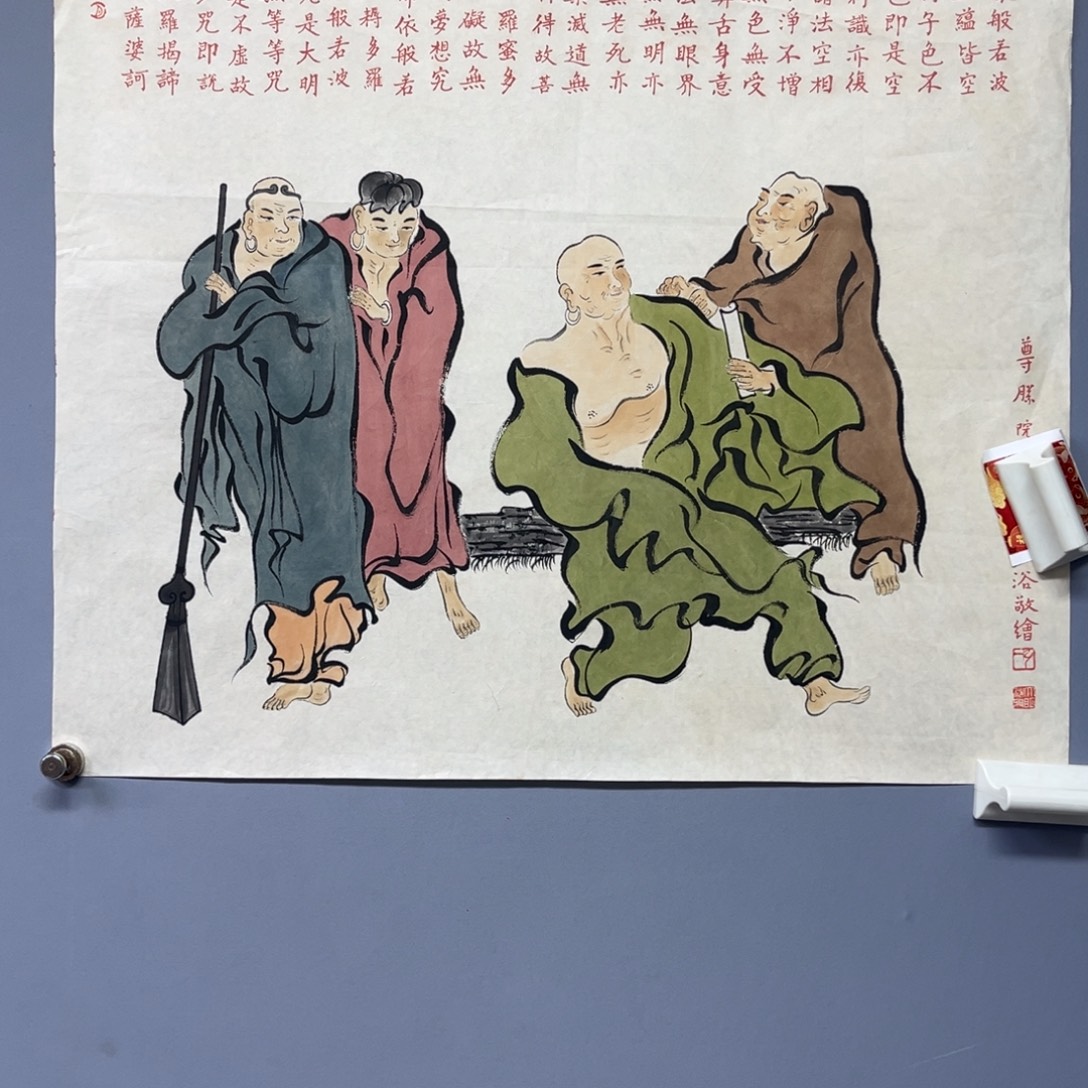 般若波
蘊皆空
子色不
即是空
識亦復
諸法空相
淨不增
色無受
舌身意
無眼界
無明亦
無老死亦
滅道無
得故菩
羅蜜多
礙故無
夢想究
依般若
耨多羅
般若波
是大明
等等咒
不虛故
咒即説
羅揭諦
薩婆訶
尊勝院
浴敬繪